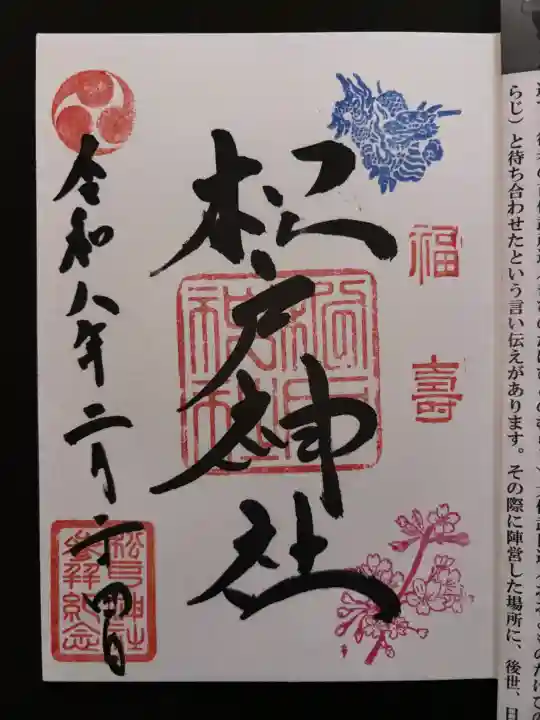 福壽
松戸神社
松戸神社
令和八年二月二十四日
松戸神社
参拝紀念
らじ）と待ち合わせたという言い伝えがあります。その際に陣営した場所に、後世、日